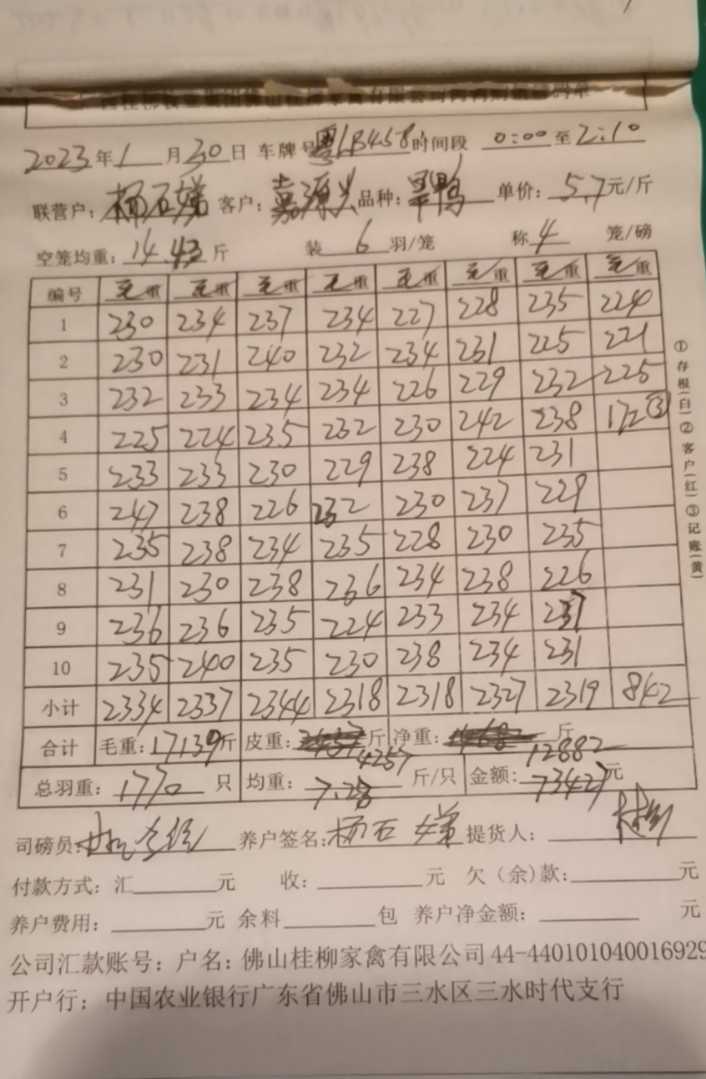 2023年1月30日 车牌号粤LB3458时间段 0:00至2:10
联营户:杨石娣 客户:嘉源兴 品种:军鸭 单价:5.7元/斤
空笼均重:14.43斤 装6羽/笼 称4笼/磅
编号 毛重 毛重 毛重 毛重 毛重 毛重 毛重 毛重
1 230 234 237 234 227 228 235 224
2 230 231 240 232 234 231 225 221
3 232 233 234 234 226 229 232 225
4 225 224 235 232 230 242 238 172③
5 233 233 230 229 238 224 231
6 247 238 226 232 230 237 229
7 235 238 234 235 228 230 235
8 231 230 238 236 234 238 226
9 236 236 235 224 233 234 237
10 235 240 235 230 238 234 231
小计 2334 2337 2344 2318 2318 2327 2319 842
合计 毛重:17139斤 皮重:4257斤 净重:12882斤
总羽重:1770只 均重:7.28斤/只 金额:73427元
司磅员: 养户签名:杨石娣 提货人:
付款方式:汇 元 收: 元 欠(余)款: 元
养户费用: 元 余料 包 养户净金额: 元
公司汇款账号:户名:佛山桂柳家禽有限公司 44-440101040016929
开户行:中国农业银行广东省佛山市三水区三水时代支行
①存根(白)②客户(红)③记账(黄)